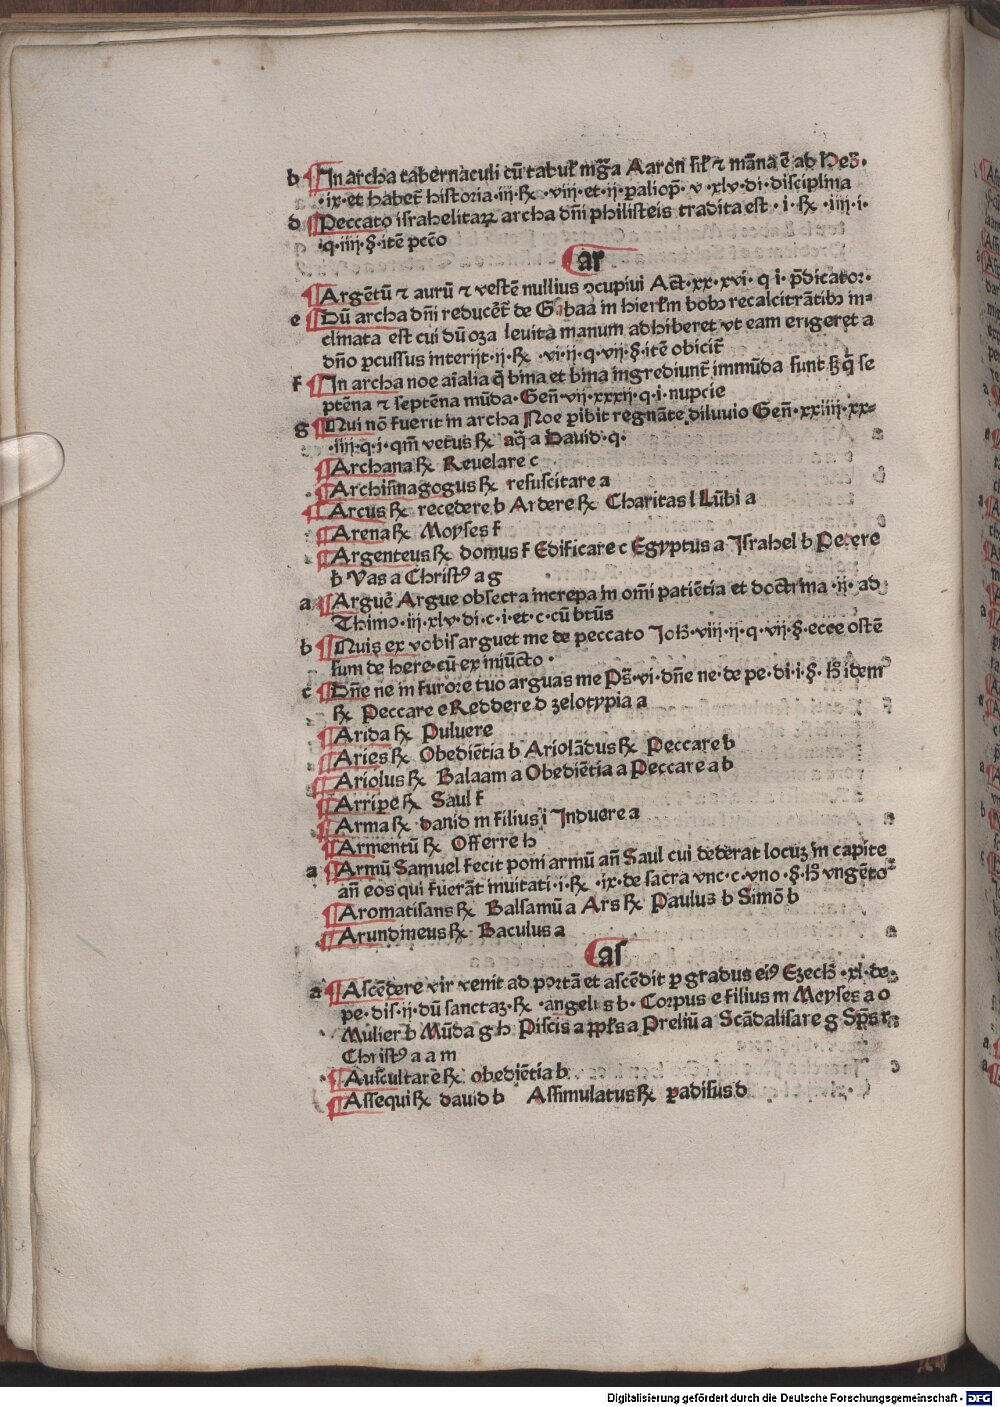 b ¶In archa tabernaculi cū tabul̕ mg̅a Aaron sil̕ ⁊ māna ē ad Heb̅.
·ix·et habet̅ historia·iij·℞ ·viij·et·ij·ꝑaliop̅· v ·xlv·di·disciplina
d ¶Peccato israhelitaꝝ archa dn̄i philisteis tradita est · i · ℞ ·iiij·i·
·q·iiij·§·itē pcc̄o
¶ar
¶Argētū ⁊ aurū ⁊ vestē nullius ↄcupiui Act·xx·xxvi· q i· p̄dicator·
e ¶Dū archa dn̄i reducēt̅ de Gabaa in hierl̅m bobꝫ recalcitrātibꝫ in⸗
clinata est cui dū oza leuita manum adhiberet vt eam erigeret a
dn̄o ꝑcussus interijt·ij·℞ ·vi·ij·q·vij·§·itē obicit̅
f ¶In archa noe aīalia q̄ bina et bina ingrediunt̅ immūda sunt ꝫ q̄ se
ptēna ⁊ septēna mūda· Gen̄·vij·xxxij·q·i·nupcie
g ¶Qui nō fuerit in archa Noe ꝑibit regnāte diluuio Gen̄·xxiiij·xx⸗
·iiij·q·i·qm̄ vetus ℞ aq̄ a Dauid·q·
¶Archana ℞ Reuelare c
¶Archisinagogus ℞ resuscitare a
¶Arcus ℞ recedere b Ardere ℞ Charitas l Lūbi a
¶Arena ℞ Moyses f
¶Argenteus ℞ domus f Edificare c Egyptus a Israhel b Petere
b Vas a Christꝰ a g
a ¶Arguē Argue obsecra increpa in om̄i patiētia et doctrina ·ij· ad
Thimo·iij·xlv·di·c·i·et·c·cū btūs
b ¶Quis ex vobis arguet me de peccato Joh̅·viij·ij·q·vij·§·ecce ostē
sum de here·cū ex iniūcto·
c ¶Dn̄e ne in furore tuo arguas me Ps̄·vi·dn̄e ne·de pe·di·i·§· hꝫ idem
℞ Peccare e Reddere d zelotypia a
¶Arida ℞ Puluere
¶Aries ℞ Obediētia b Ariolādus ℞ Peccare b
¶Ariolus ℞ Balaam a Obediētia a Peccare a b
¶Arripe ℞ Saul f
¶Arma ℞ dauid m filius i Induere a
¶Armentū ℞ Offerre h
a ¶Armū Samuel fecit poni armū an̄ Saul cui dederat locuꝫ in capite
an̄ eos qui fuerāt inuitati·i·℞ ·ix·de sacra vnc·c·vno ·§·hꝫ vngēto
¶Aromatisans ℞ Balsamū a Ars ℞ Paulus b Simō b
¶Arundineus ℞ Baculus a
¶as
a ¶Ascēdere vir venit ad portā et ascēdit ꝑ gradus eiꝰ Ezech̅·xl·de·
pe·dis·ij·dū sanctaꝫ·℞ ·angelis b· Corpus e filius m Moyses a o
Mulier b Mūda g h Piscis a ppl̕s a Preliū a Scādalisare g Sp̄s r
Christꝰ a a m
¶Auscultare ℞ obediētia b
¶Assequi ℞ dauid b Assimulatus ℞ ꝑadisus d
Digitalisierung gefördert durch die Deutsche Forschungsgemeinschaft - DFG